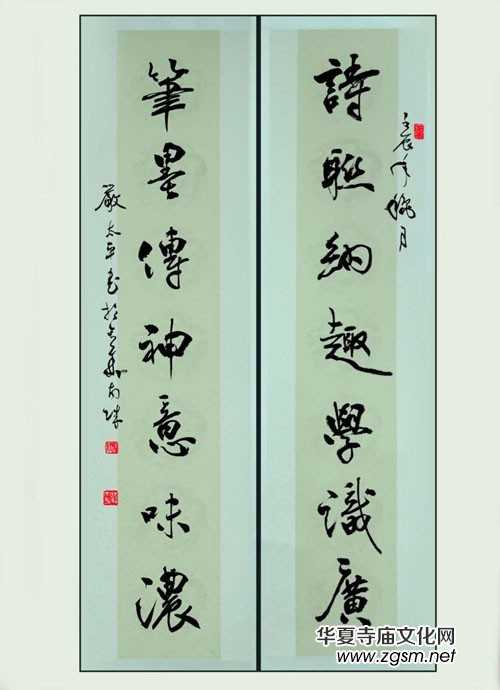 壬辰年月
詩聯納趣學識廣
筆墨傳神意味濃
嚴太平書於
华夏寺庙文化网
www.zgsm.net